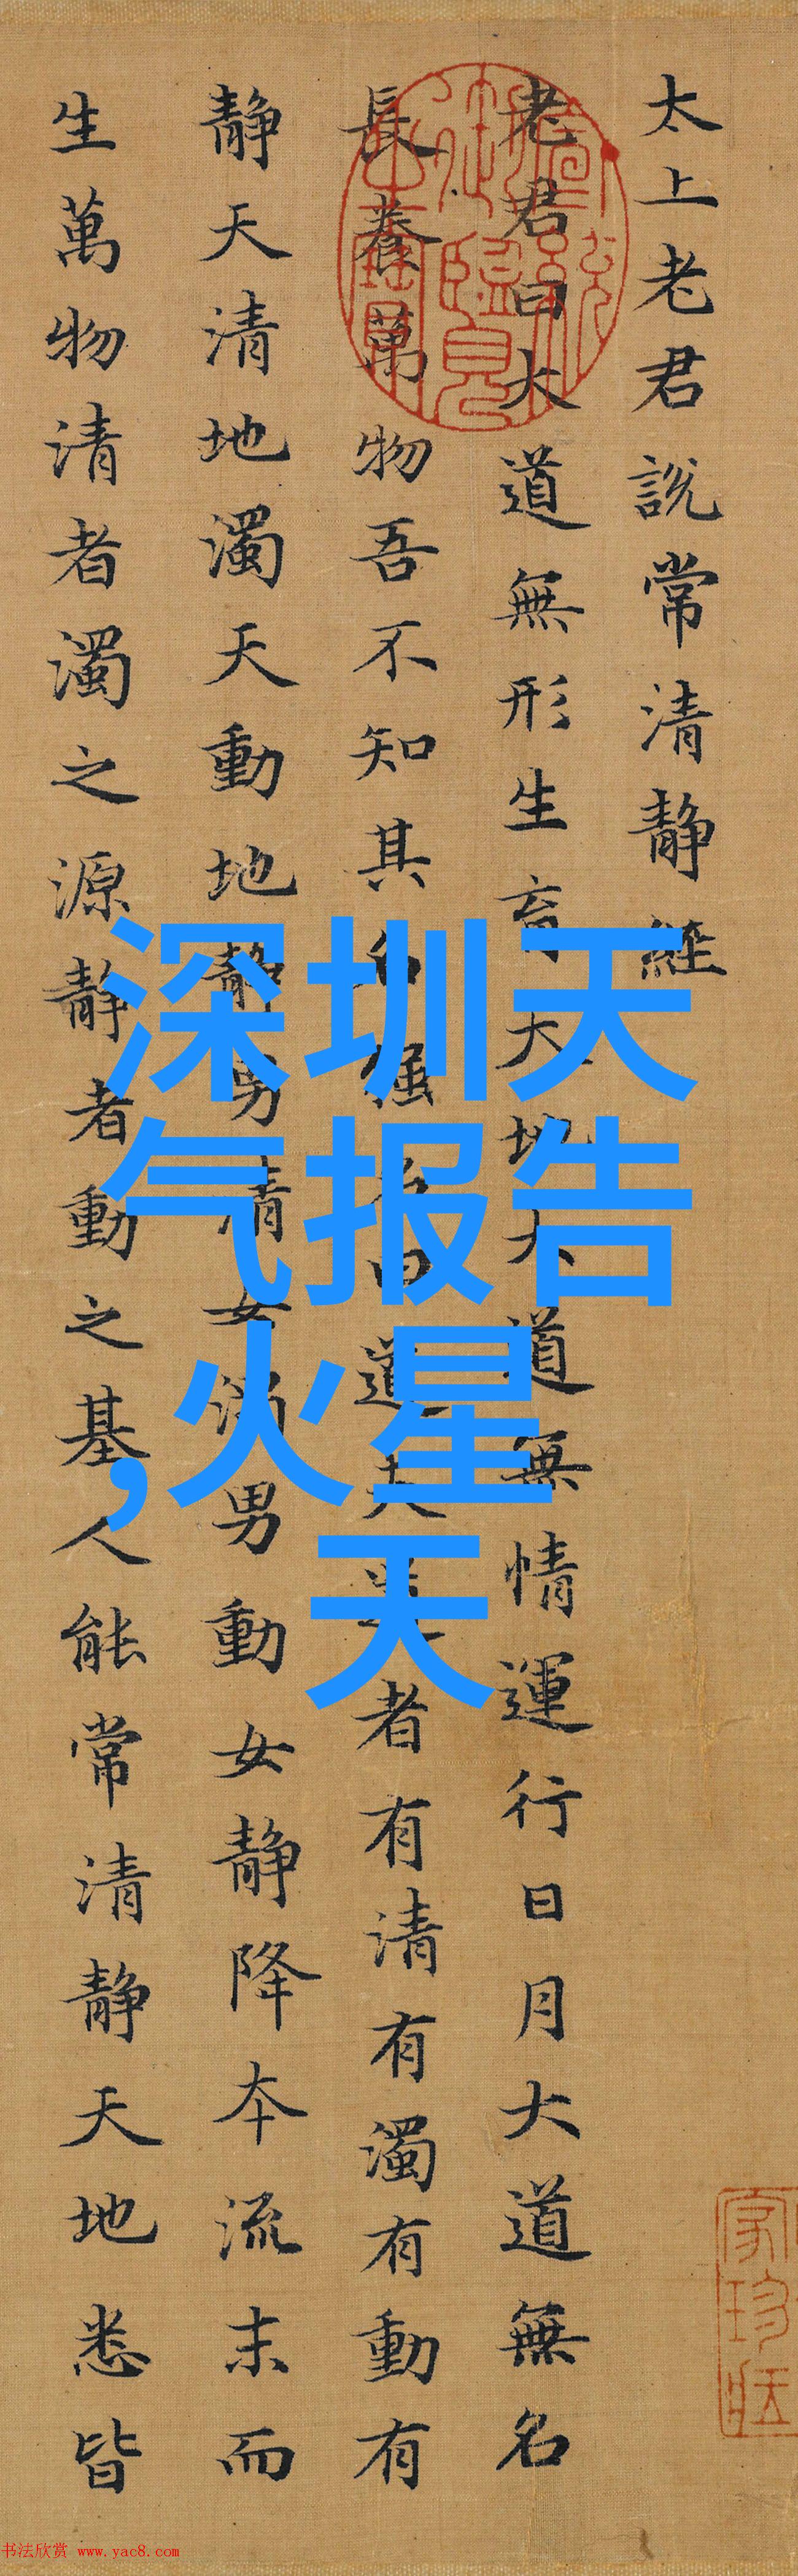 太上老君說常清静經
老君曰大道無形生育天地大道無情運行日月大道無名
長養萬物吾不知其名强名曰道夫道者有清有濁有動有
静天清地濁天動地静男清女濁男動女静降夲流末而
生萬物清者濁之源静者動之基人能常清静天地悉皆
深圳天
气报告
,火星
天
书法欣赏 www.yac8.com